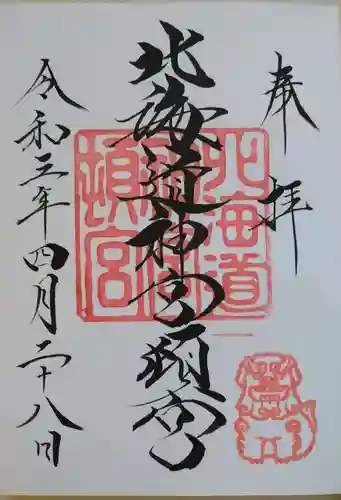 奉拝
北海道神宮頓宮
北海道神宮頓宮
令和三年四月二十八日